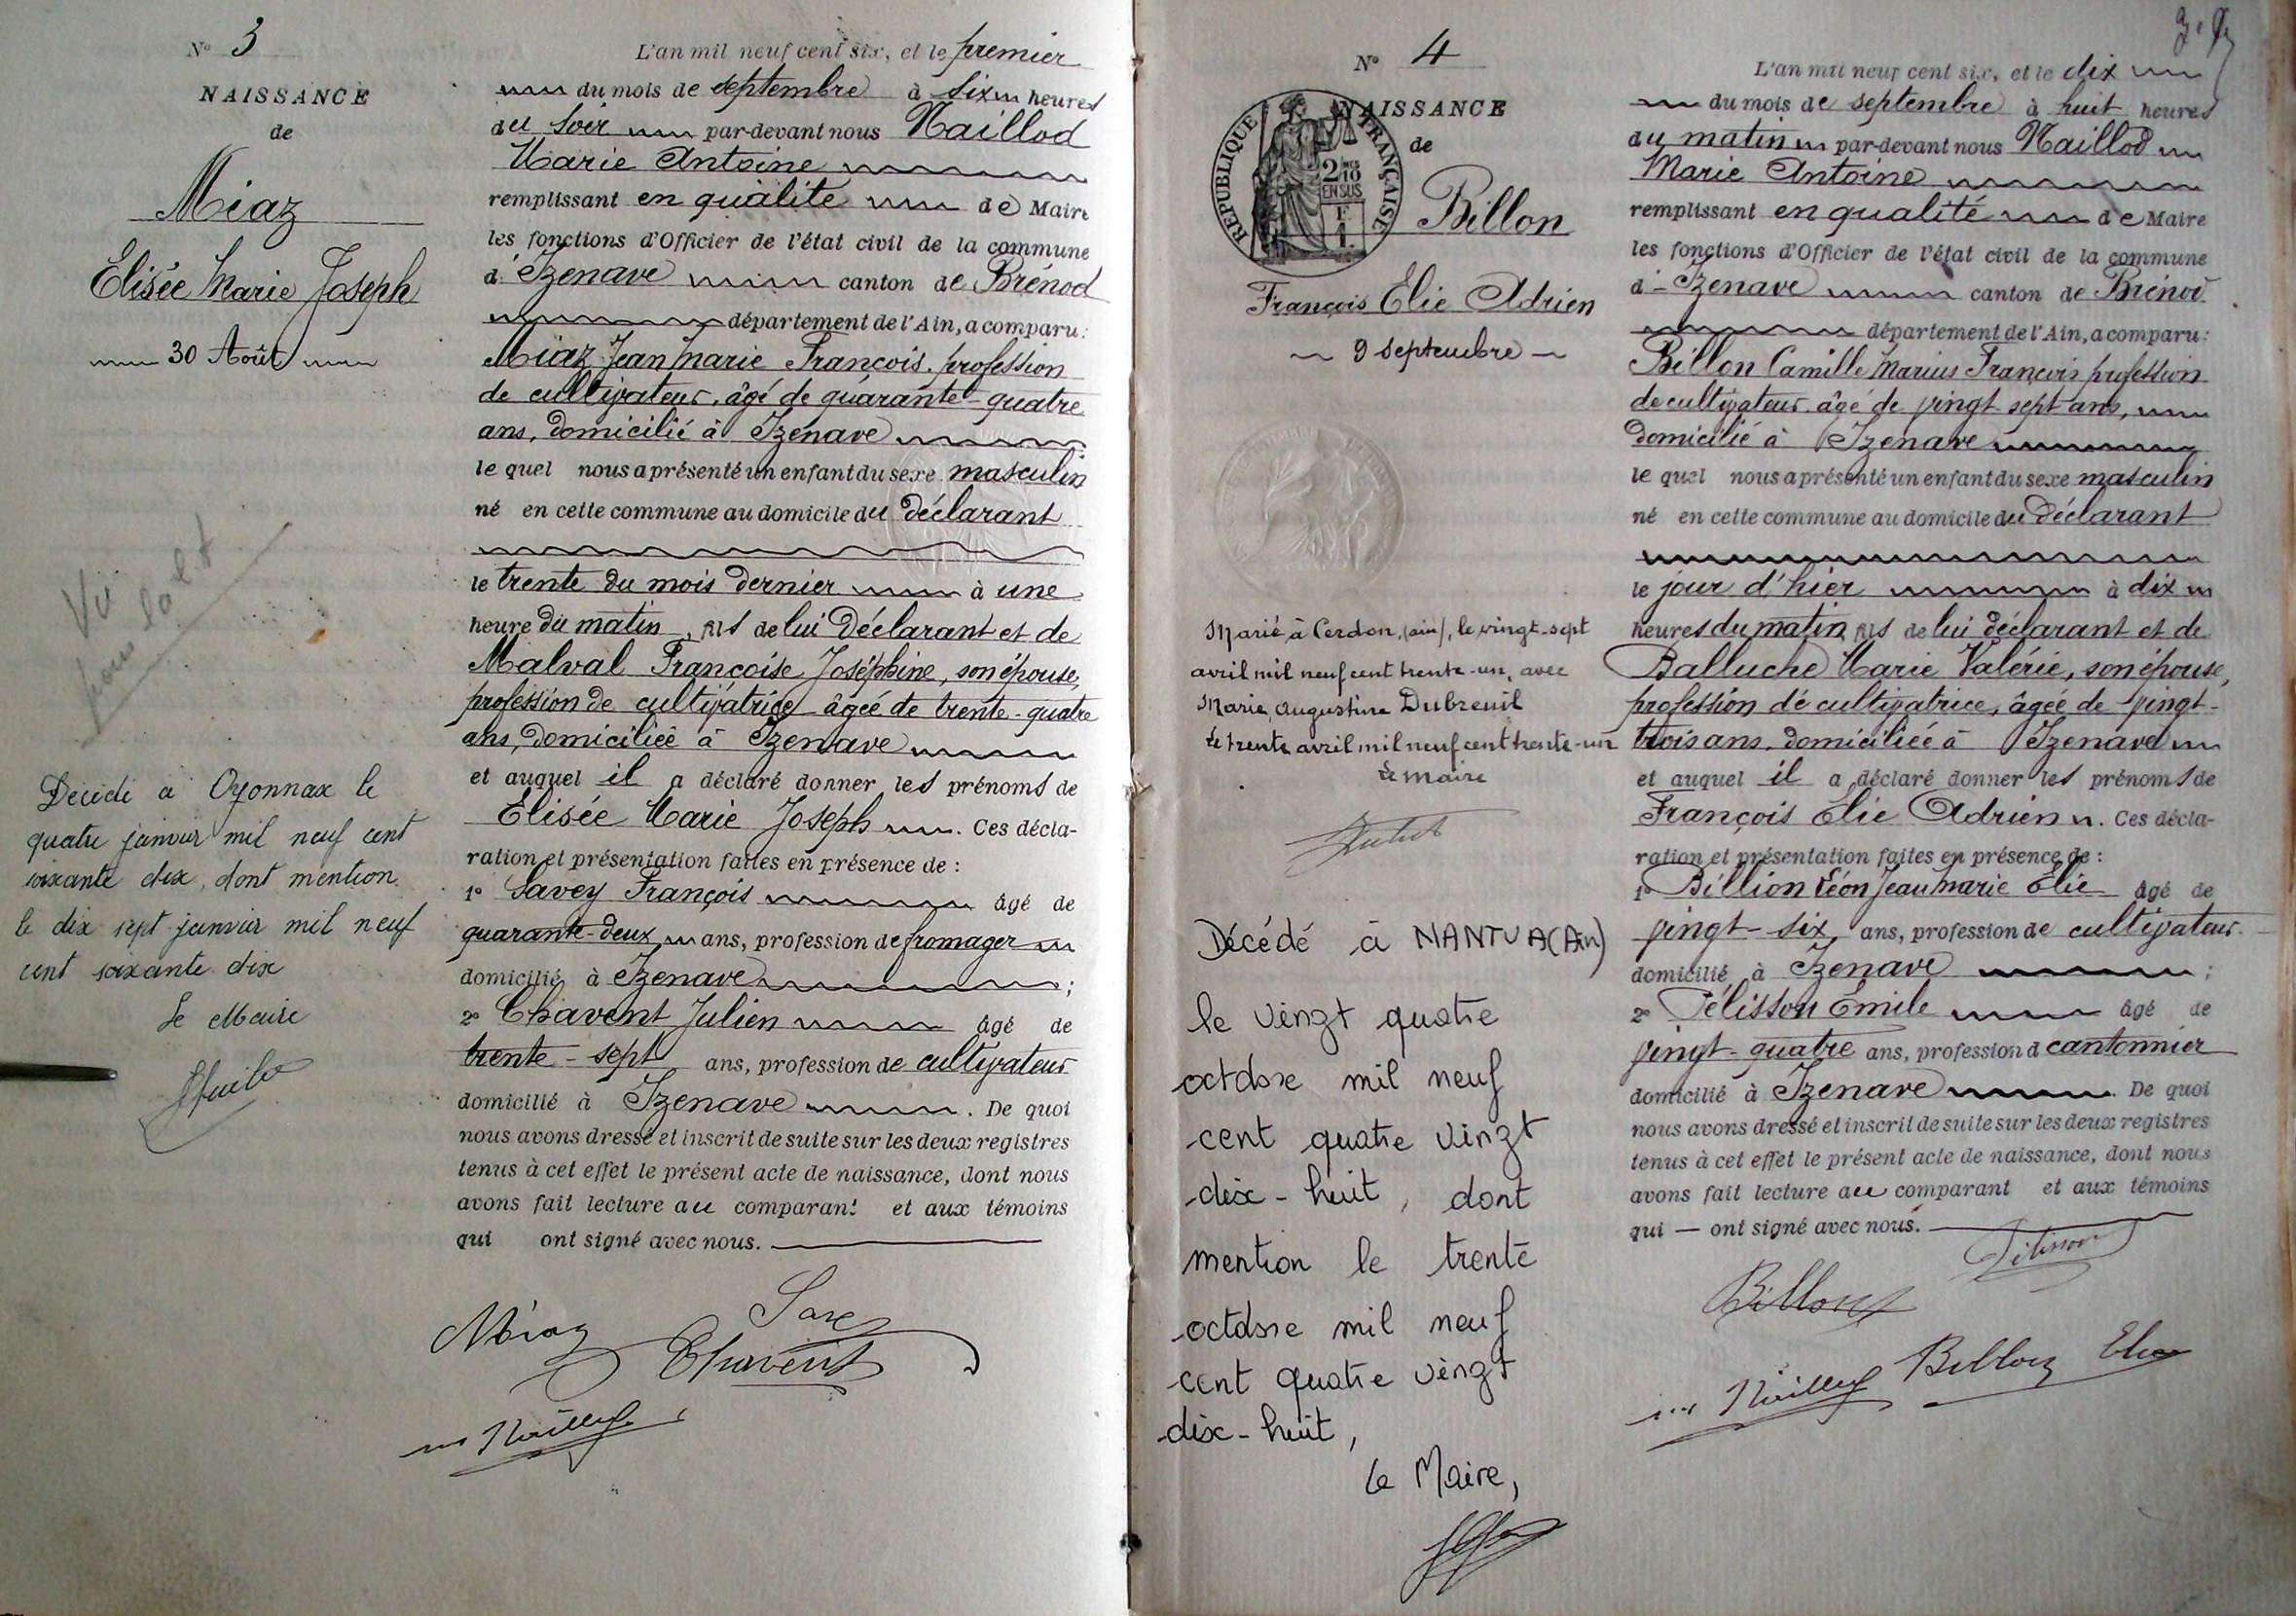 N° 3
NAISSANCE
de
Miaz
Elisée Marie Joseph
30 Août
Vu
Décédé à Oyonnax le
quatre janvier mil neuf cent
soixante dix, dont mention
le dix sept janvier mil neuf
cent soixante dix
Le Maire
L'an mil neuf cent six, et le premier
du mois de septembre à six heures
du soir par-devant nous Naillod
Marie Antoine
remplissant en qualité de Maire
les fonctions d'Officier de l'état civil de la commune
d'Izenave canton de Brénod
département de l'Ain, a comparu:
Miaz Jean Marie François. profession
de cultivateur, âgé de quarante-quatre
ans, domicilié à Izenave
le quel nous a présenté un enfant du sexe masculin
né en cette commune au domicile du déclarant
le trente du mois dernier à une
heure du matin, fils de lui Déclarant et de
Malval Françoise Joséphine, son épouse,
profession de cultivatrice âgée de trente-quatre
ans, domiciliée à Izenave
et auquel il a déclaré donner les prénoms de
Elisée Marie Joseph. Ces décla-
ration et présentation faites en présence de :
1° Savey François âgé de
quarante-deux ans, profession de fromager
domicilié à Izenave ;
2° Chavent Julien âgé de
trente-sept ans, profession de cultivateur
domicilié à Izenave. De quoi
nous avons dressé et inscrit de suite sur les deux registres
tenus à cet effet le présent acte de naissance, dont nous
avons fait lecture au comparant et aux témoins
qui ont signé avec nous.
Miaz Savey
Chavent
N° 4
NAISSANCE
de
REPUBLIQUE FRANÇAISE
2/10
EN SUS
Billon
François Elie Adrien
9 septembre
Marié à Cerdon, (ain), le vingt-sept
avril mil neuf cent trente-un, avec
Marie, augustine Dubreuil
Le trente avril mil neuf cent trente-un
Le maire
Décédé à NANTUA (Ain)
le vingt quatre
octobre mil neuf
cent quatre vingt
dix-huit, dont
mention le trente
octobre mil neuf
cent quatre vingt
dix-huit,
Le Maire,
L'an mil neuf cent six, et le dix
du mois de septembre à huit heures
du matin par-devant nous Naillod
Marie Antoine
remplissant en qualité de Maire
les fonctions d'Officier de l'état civil de la commune
d'Izenave canton de Brénod
département de l'Ain, a comparu:
Billon Camille Marius François profession
de cultivateur âgé de vingt-sept ans,
domicilié à Izenave
le quel nous a présenté un enfant du sexe masculin
né en cette commune au domicile du Déclarant
le jour d'hier à dix
heures du matin, fils de lui déclarant et de
Balluche Marie Valérie, son épouse,
profession de cultivatrice, âgée de vingt-
trois ans, domiciliée à Izenave
et auquel il a déclaré donner les prénoms de
François Elie Adrien. Ces décla-
ration et présentation faites en présence de :
1° Billion Léon Jean Marie Elie âgé de
vingt-six ans, profession de cultivateur
domicilié à Izenave ;
2° Pélisson Émile âgé de
vingt-quatre ans, profession d cantonnier
domicilié à Izenave. De quoi
nous avons dressé et inscrit de suite sur les deux registres
tenus à cet effet le présent acte de naissance, dont nous
avons fait lecture au comparant et aux témoins
qui — ont signé avec nous.
Pélisson
Billon
Billon Elie